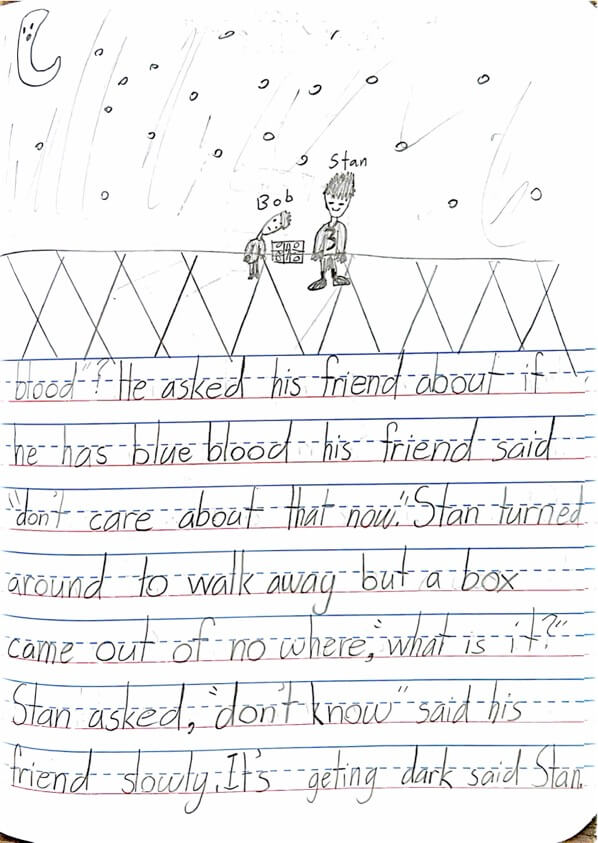 Stan
Bob
3
blood"? He asked his friend about if
he has blue blood his friend said
"don't care about that now." Stan turned
around to walk away but a box
came out of no where, "what is it?"
Stan asked, "don't know" said his
friend slowly. It's geting dark said Stan.